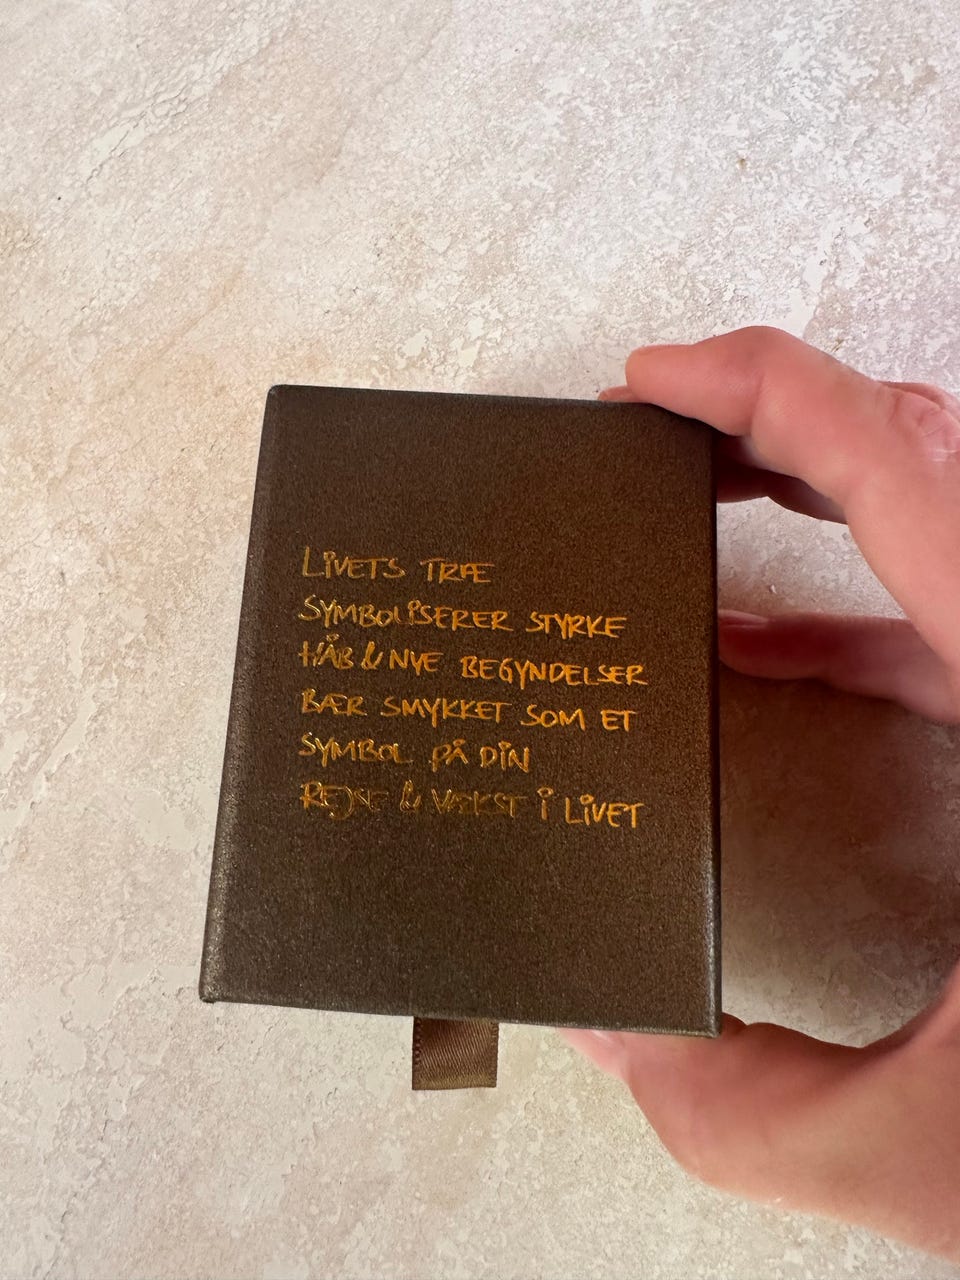 LIVETS TRÆ
SYMBOLISERER STYRKE
HÅB & NYE BEGYNDELSER
BÆR SMYKKET SOM ET
SYMBOL PÅ DIN
REJSE & VÆKST I LIVET